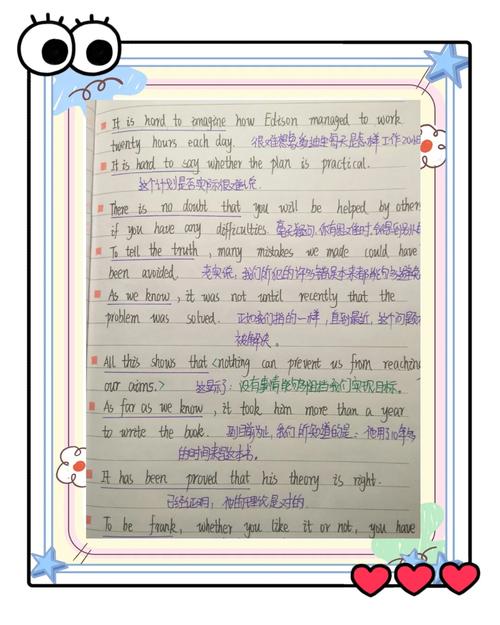 It is hard to imagine how Edison managed to work
twenty hours each day. 很难想象爱迪生每天是怎样工作20小
It is hard to say whether the plan is practical.
这个计划是否实际很难说.
There is no doubt that you will be helped by others
if you have any difficulties. 毫无疑问,你有困难时,
To tell the truth, many mistakes we made could have
been avoided. 老实说,我们所犯的许多错是本来都能够避免
As we know, it was not until recently that the
problem was solved. 正如我们指的一样,直到最近,这个问题才
被解决。
All this shows that <nothing can prevent us from reaching
our aims.> 这显示了:没有事情能够阻挡我们实现目标。
As far as we know, it took him more than a year
to write the book. 到目前为止,我们所知道的是:他用了10年多
的时间来写这本书。
It has been proved that his theory is right.
已经证明,他的理论是对的.
To be frank, whether you like it or not, you have